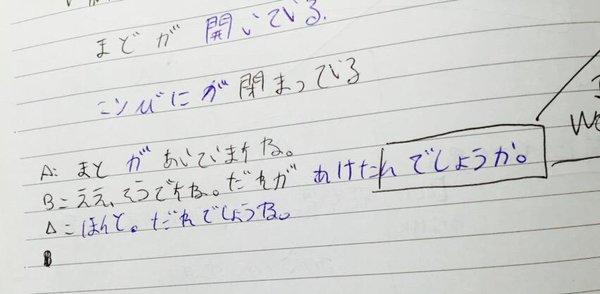 まどが 開いている.
コンビにが 閉まっている
A: まど が あいていますね。
B: ええ、そうですね。だれが あけたんでしょうか。
A: ほんと。だれでしょうね。
B